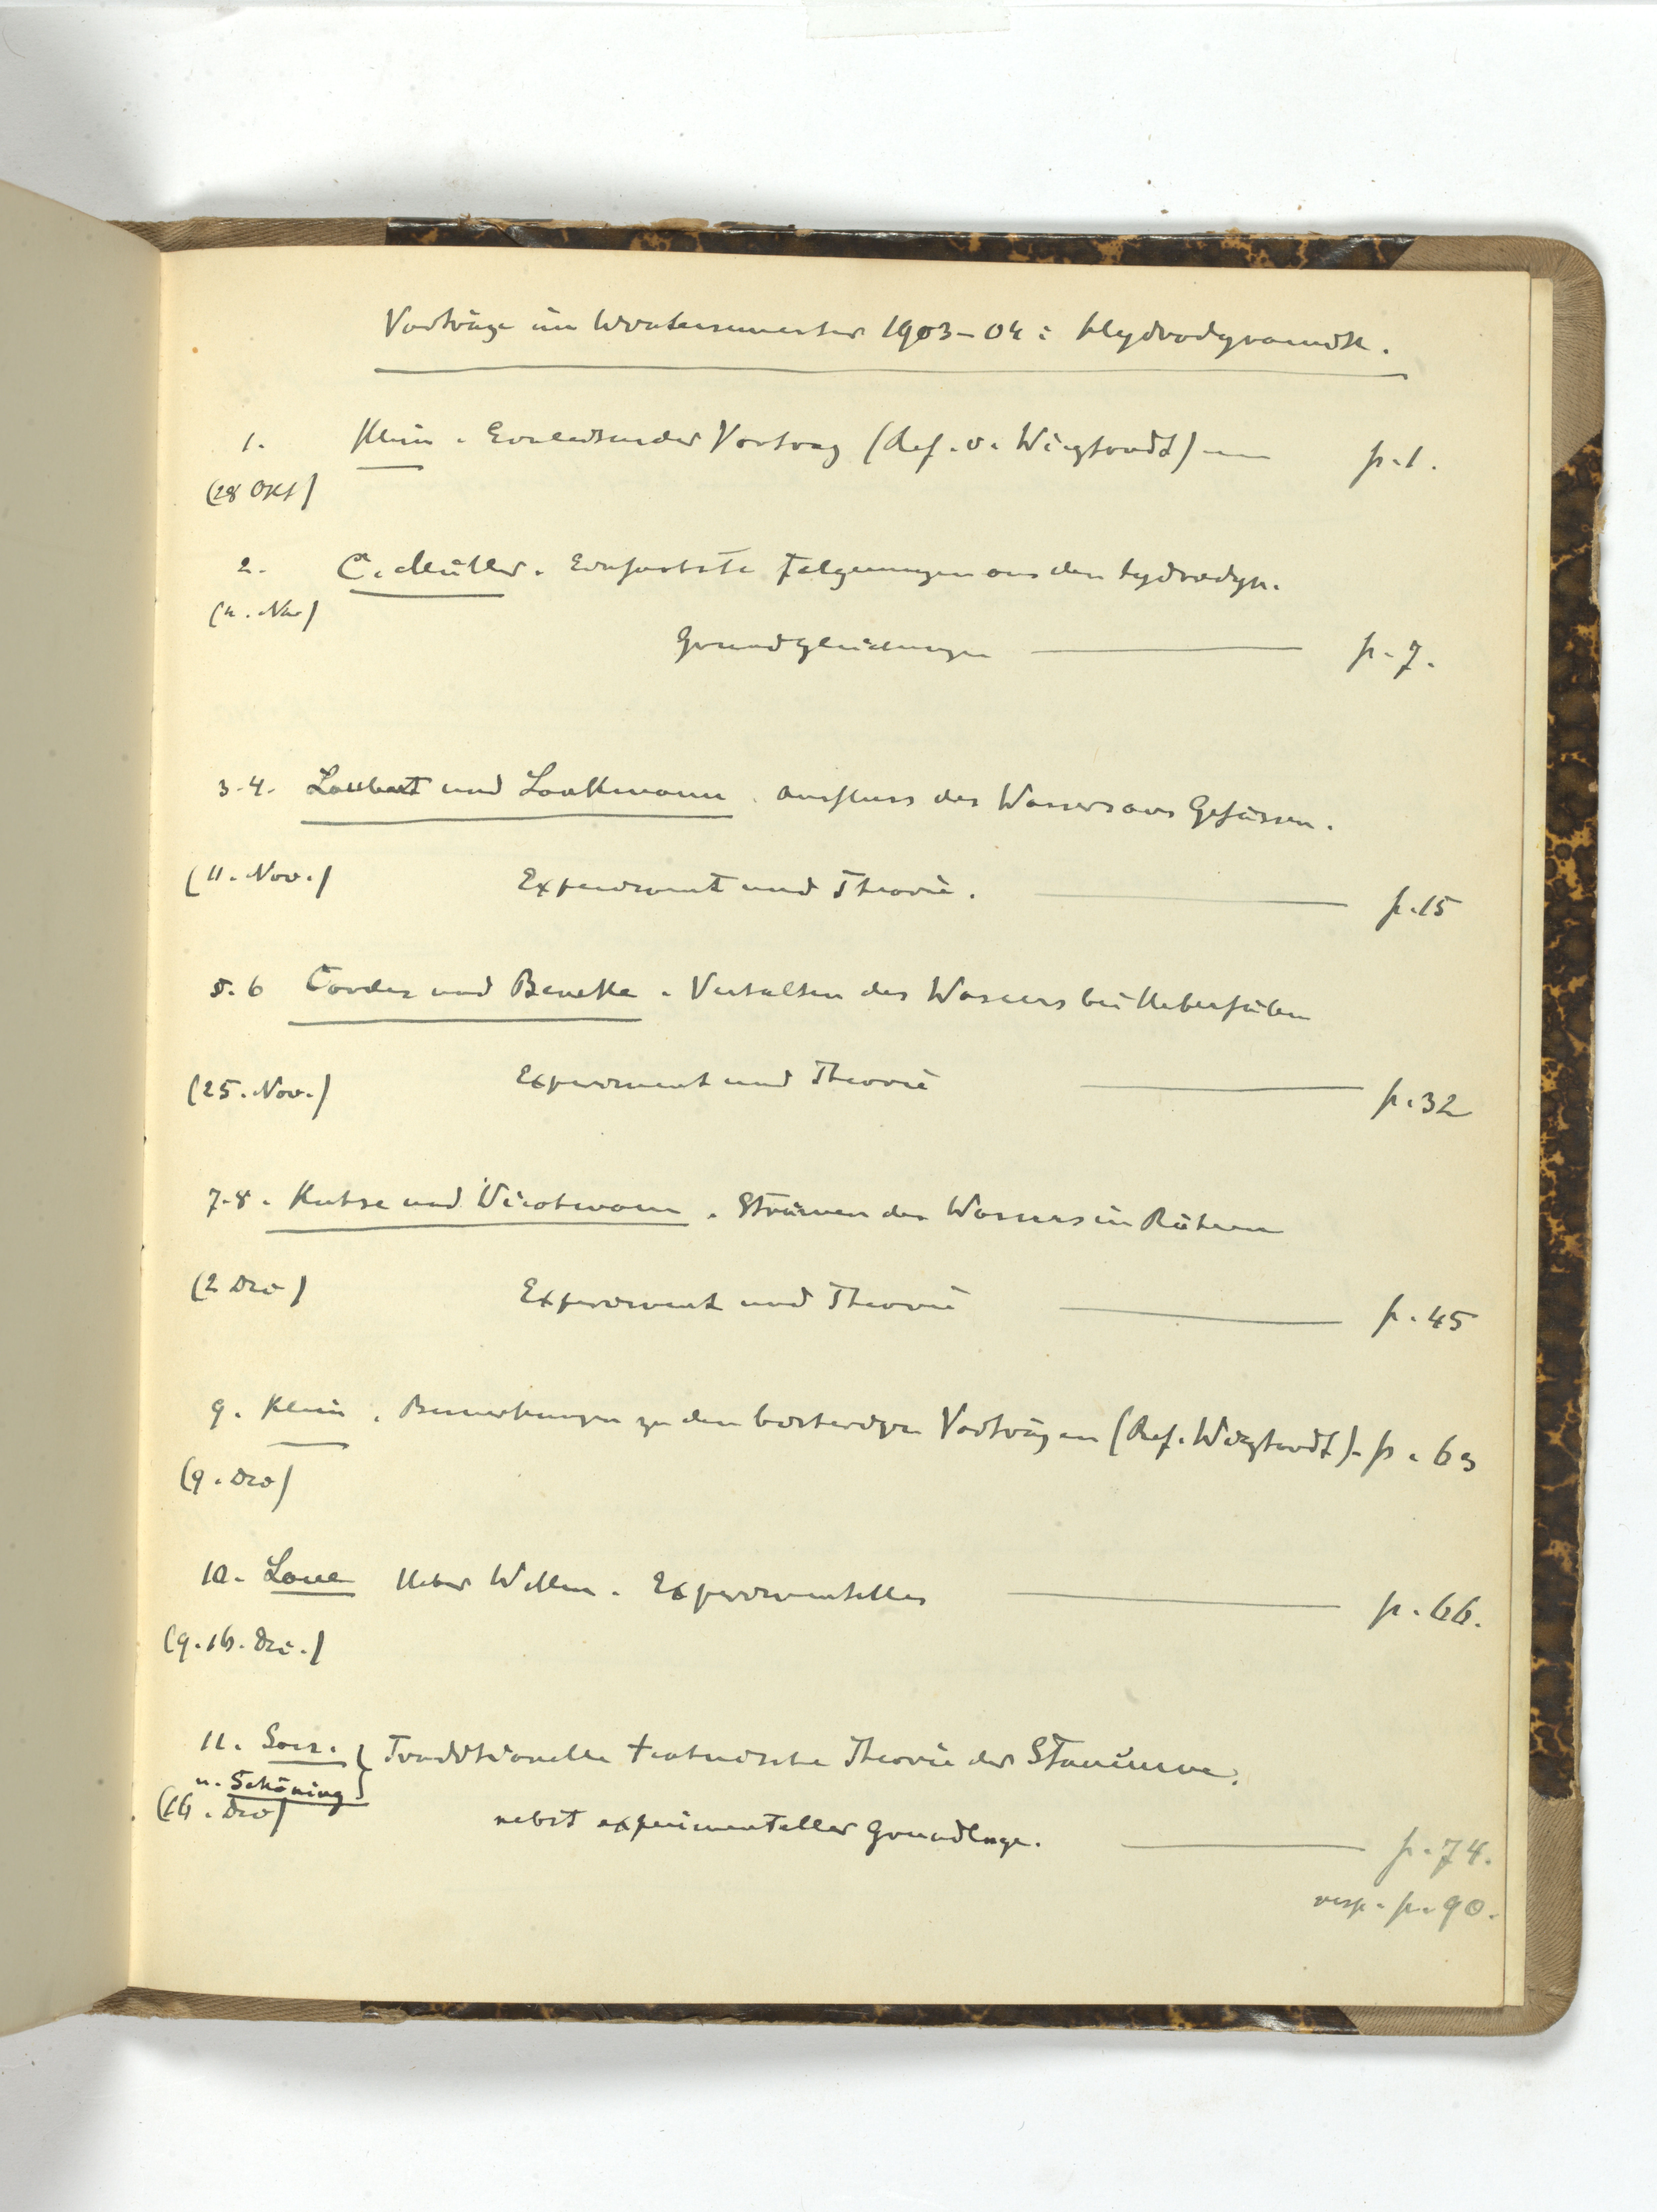 Vorträge im Wintersemester 1903-04: Hydrodynamik.
1. Klein. Einleitender Vortrag (Ref. v. Wieghardt) — p. 1.
(28 Okt)
2. C. Müller. Einfachste Folgerungen aus den hydrodyn.
(4. Nov)
Grundgleichungen — p. 7.
3-4. und Ausfluss des Wassers aus Gefässen.
(11. Nov.) Experiment und Theorie. — p. 15
5.6 Cordes und Beneke. Verhalten des Wassers bei Ueberfällen
(25. Nov.) Experiment und Theorie — p. 32
7-8. und Strömen des Wassers in Röhren
(2 Dec) Experiment und Theorie — p. 45
9. Klein. Bemerkungen zu den bisherigen Vorträgen (Ref. Wieghardt) - p. 63
(9. Dec)
10. Laue Ueber Wellen. Experimentelles — p. 66.
(9. 16. Dec.)
11. Traditionelle technische Theorie der Staukurve,
u. Schöning
(16. Dec) nebst experimenteller Grundlage. — p. 74.
resp. p. 90.